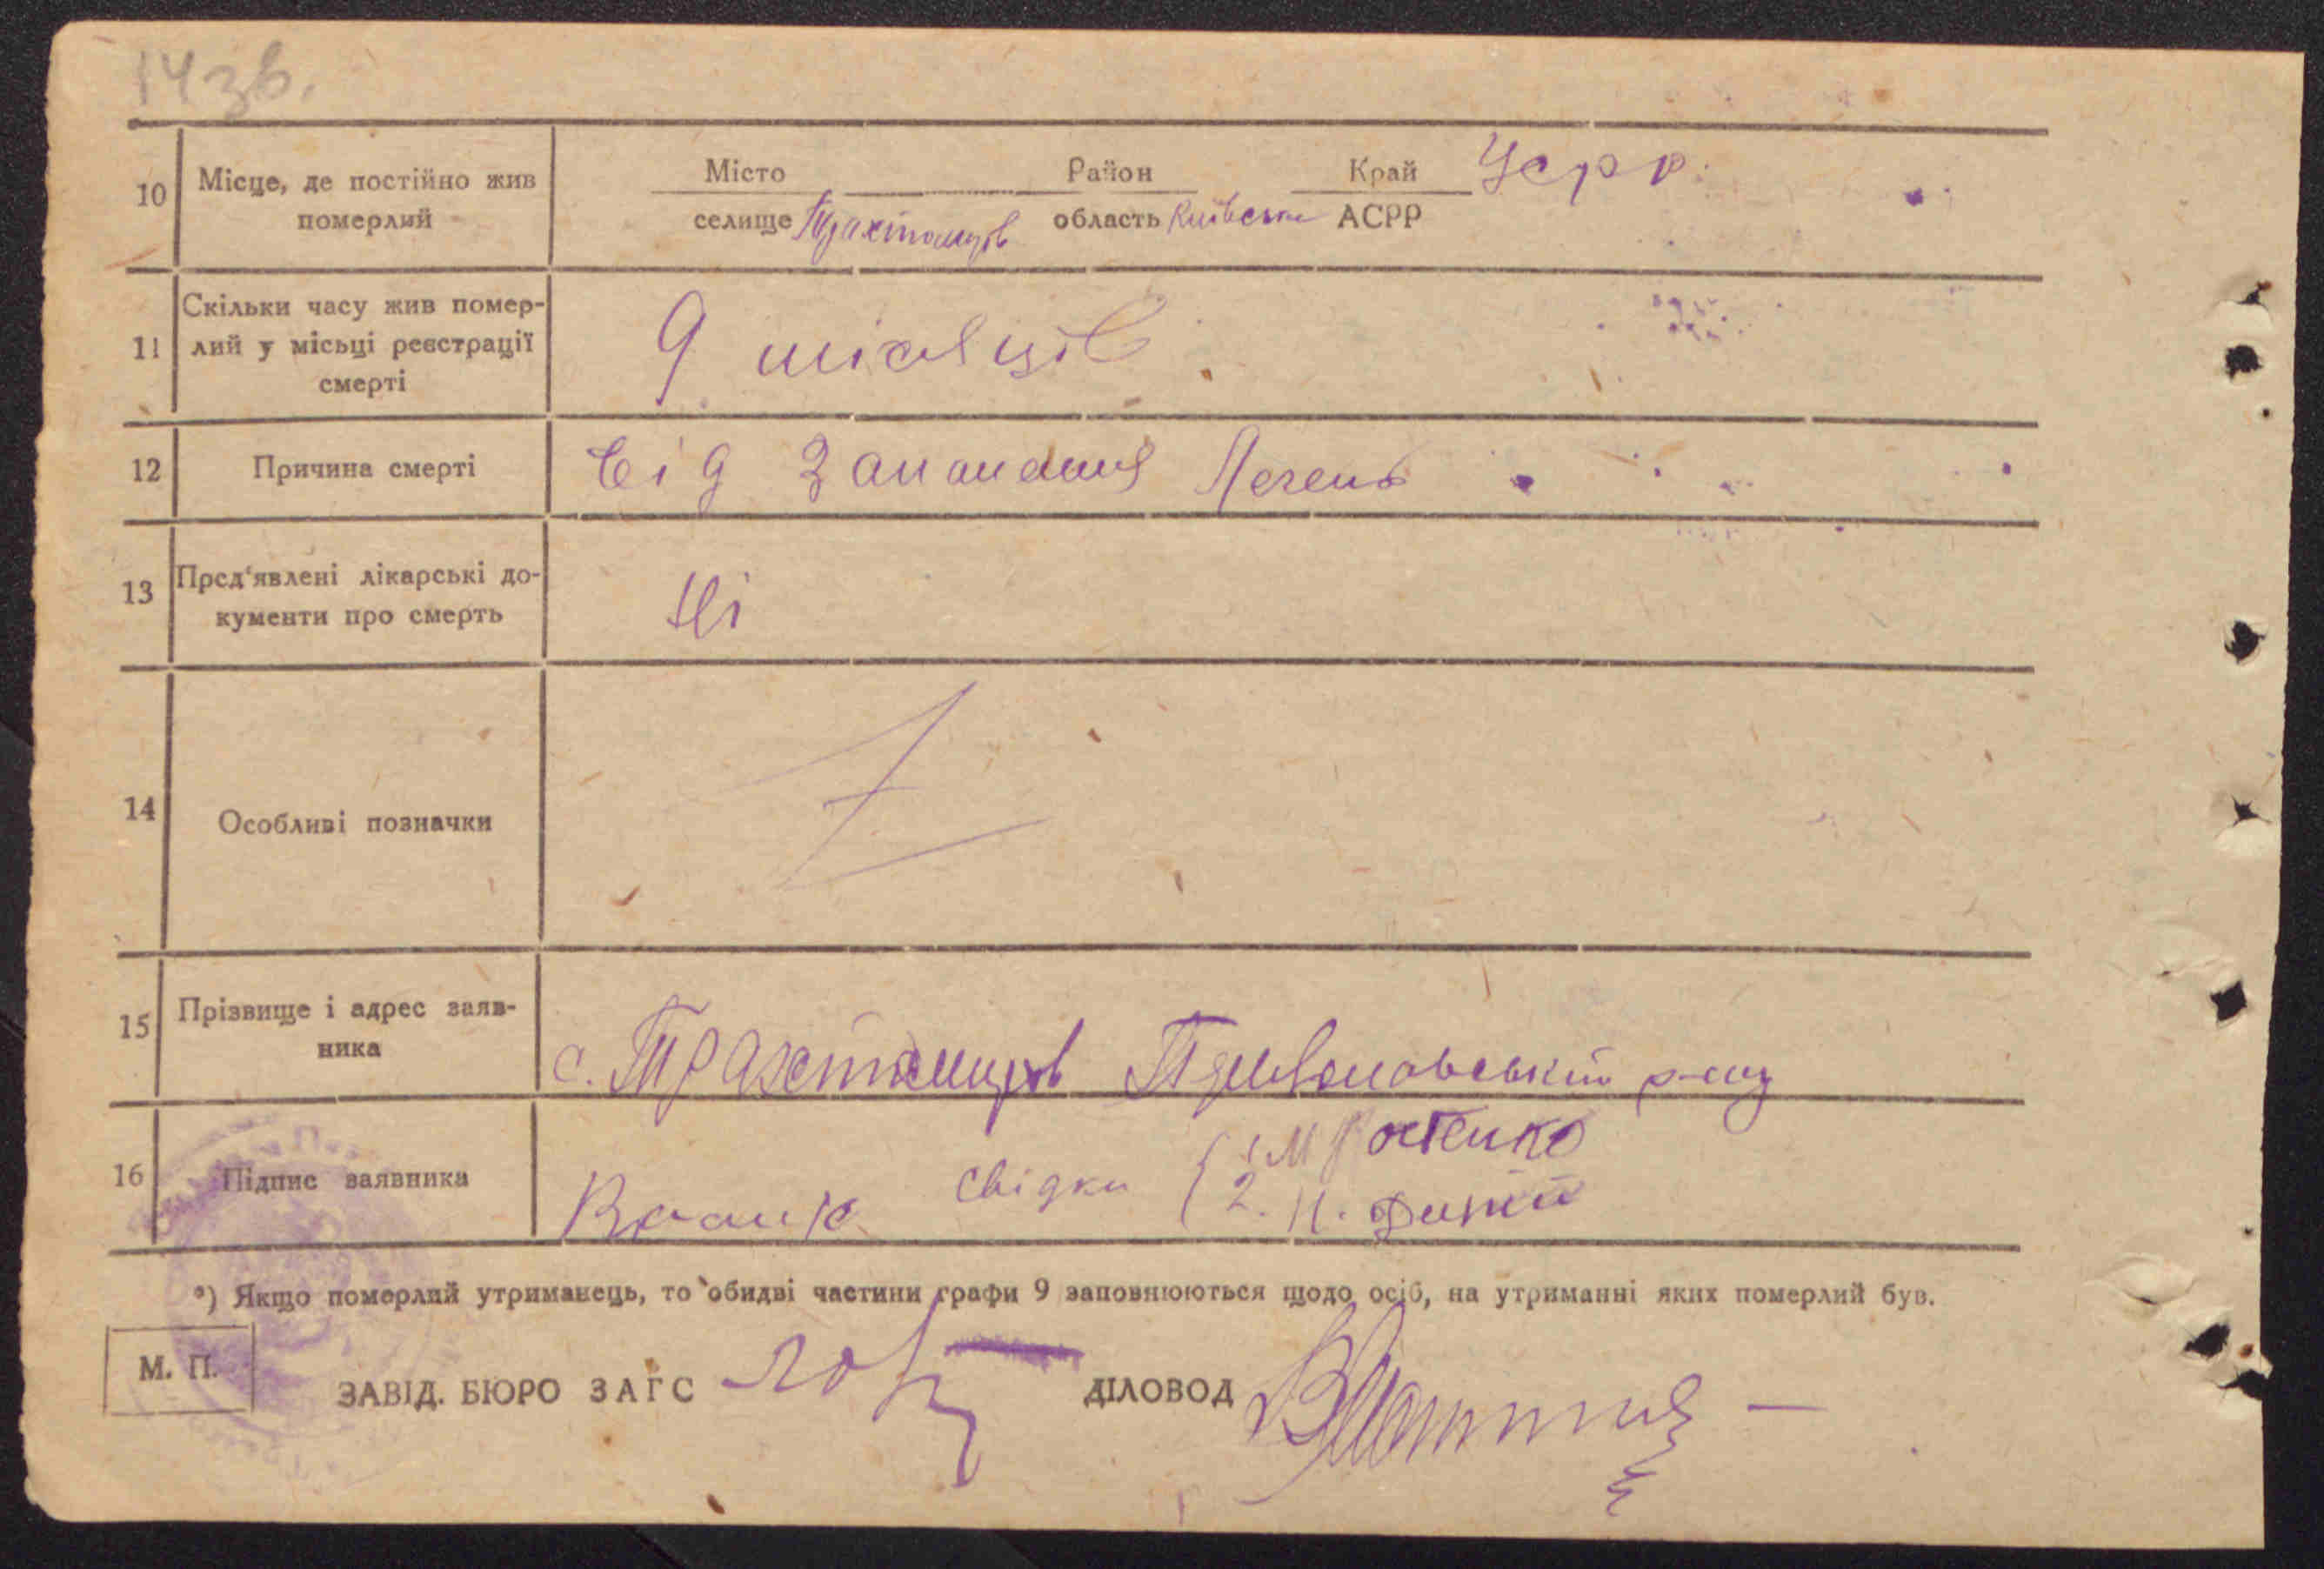 14 зв.
10 Місце, де постійно жив померлий
Місто Район Край Усрр.
селище Трахтомирів область Київська АСРР
11 Скільки часу жив помер-
лий у місьці реєстрації
смерті
9 місяців
12 Причина смерті від Запаления Печень
13 Пред‘явлені лікарські до-
кументи про смерть
Ні
14 Особливі позначки
15 Прізвище і адрес заяв-
ника
с. Трахтомирів р-ну
16 Підпис заявника
свідки 1. М
2.
*) Якщо померлий утриманець, то обидві частини графи 9 заповнюються щодо осіб, на утриманні яких померлий був.
М. П.
ЗАВІД. БЮРО ЗАГС ДІЛОВОД